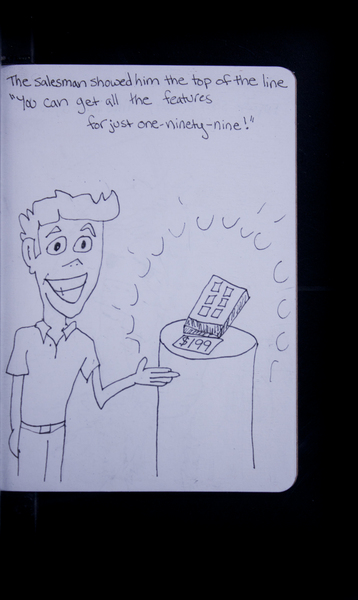 The salesman showed him the top of the line
"You can get all the features
for just one-ninety-nine!"
$199